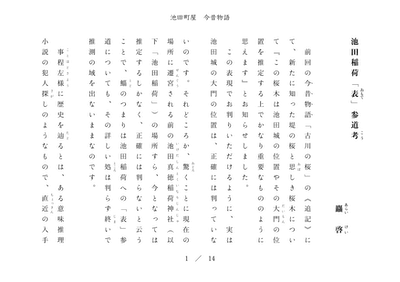 池田町屋　今昔物語
池田稲荷「表」参道考
啓
前回の今昔物語「古川の桜」の〈追記〉に
て、新たに知った境の桜と思しき桜木につい
て『この桜木は池田城の位置とその大門の位
置を推定する上でかなり重要なもののように
思えます』とお知らせしました。
この表現でお判りいただけるように、実は
池田城の大門の位置は、正確には判っていな
いのです。それどころか、驚くことに現在の
場所に遷宮される前の池田真徳稲荷神社（以
下「池田稲荷」）の場所すら、今となっては
推定するしかなく、正確には判らないと云う
ことで、艫のつまりは池田稲荷への「表」参
道についても、その詳しい処は判らず終いで
推測の域を出ないままなのです。
事程左様に歴史を辿るとは、ある意味推理
小説の犯人探しのようなもので、直近の人手
1 ／ 14